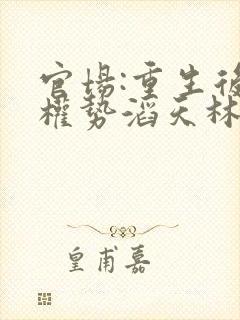 官場:重生後
權勢滔天林
皇甫嘉